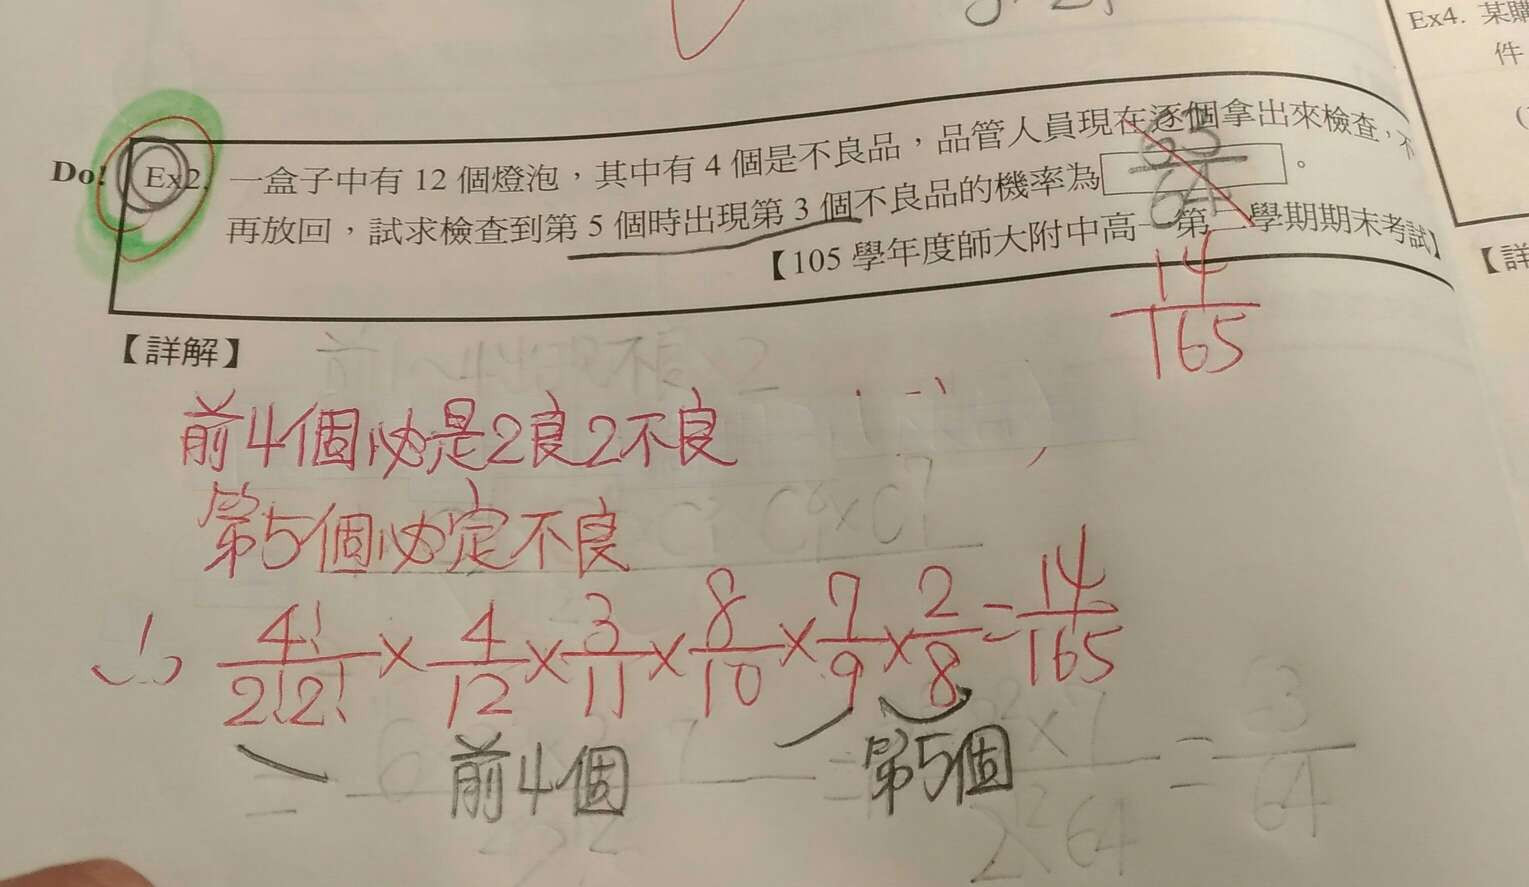 Ex4. 某購
件
Do! Ex2. 一盒子中有 12 個燈泡,其中有 4 個是不良品,品管人員現在逐個拿出來檢查,不
再放回,試求檢查到第 5 個時出現第 3 個不良品的機率為 。
63/64
【105 學年度師大附中高一第二學期期末考試】
14/165
【詳
【詳解】
前4個必是2良2不良
第5個必定不良
4!/2!2! × 4/12 × 3/11 × 8/10 × 7/9 × 2/8 = 14/165
前4個 第5個
= 3/64